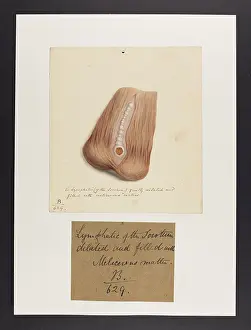 Lymphatic of the Scrotum greatly dilated and
filled with
B.
629
Lymphatic of the Scrotum
dilated and filled with
Melicerous matter.
B.
629.